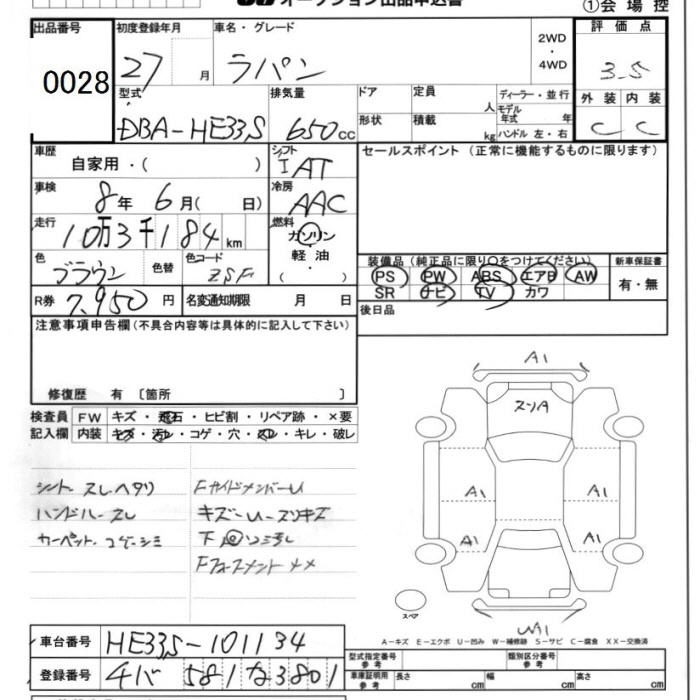 オークション出品申込書 ①会場控
出品番号 初度登録年月 車名・グレード 2WD・4WD 評価点
0028 27 月 ラパン 3.5
型式 排気量 ドア 定員 人 ディーラー・並行 外装 内装
DBA-HE33S 650 cc 形状 積載 kg モデル年式 年 ハンドル 左・右 C C
車歴 自家用・( ) シフト IAT セールスポイント (正常に機能するものに限ります)
車検 8年 6月( 日) 冷房 AAC
走行 10万3千184 km 燃料 ガソリン・軽油・( )
色 ブラウン 色替 色コード ZSF 装備品(純正品に限り○をつけてください) 新車保証書
PS PW ABS エアB AW 有・無
SR ナビ TV カワ
R券 7,950 円 名変通知期限 月 日 後日品
注意事項申告欄(不具合内容等は具体的に記入して下さい)
修復歴 有 〔箇所 〕
検査員 FW キズ・飛石・ヒビ割・リペア跡・×要
記入欄 内装 キズ・汚レ・コゲ・穴・スレ・キレ・破レ
シート スレ ヘタリ
ハンドル スレ
カーペット コゲ シミ
FサイドメンバーU
キズ U スリキズ
下
A1
スリA
A1 A1
A1 A1
スペア
A-キズ E-エクボ U-凹み W-補修跡 S-サビ C-腐食 XX-交換済
車台番号 HE33S-101134
登録番号 581 な3801
型式指定番号 参考 類別区分番号 参考
車庫証明用 参考 長さ cm 幅 cm 高さ cm